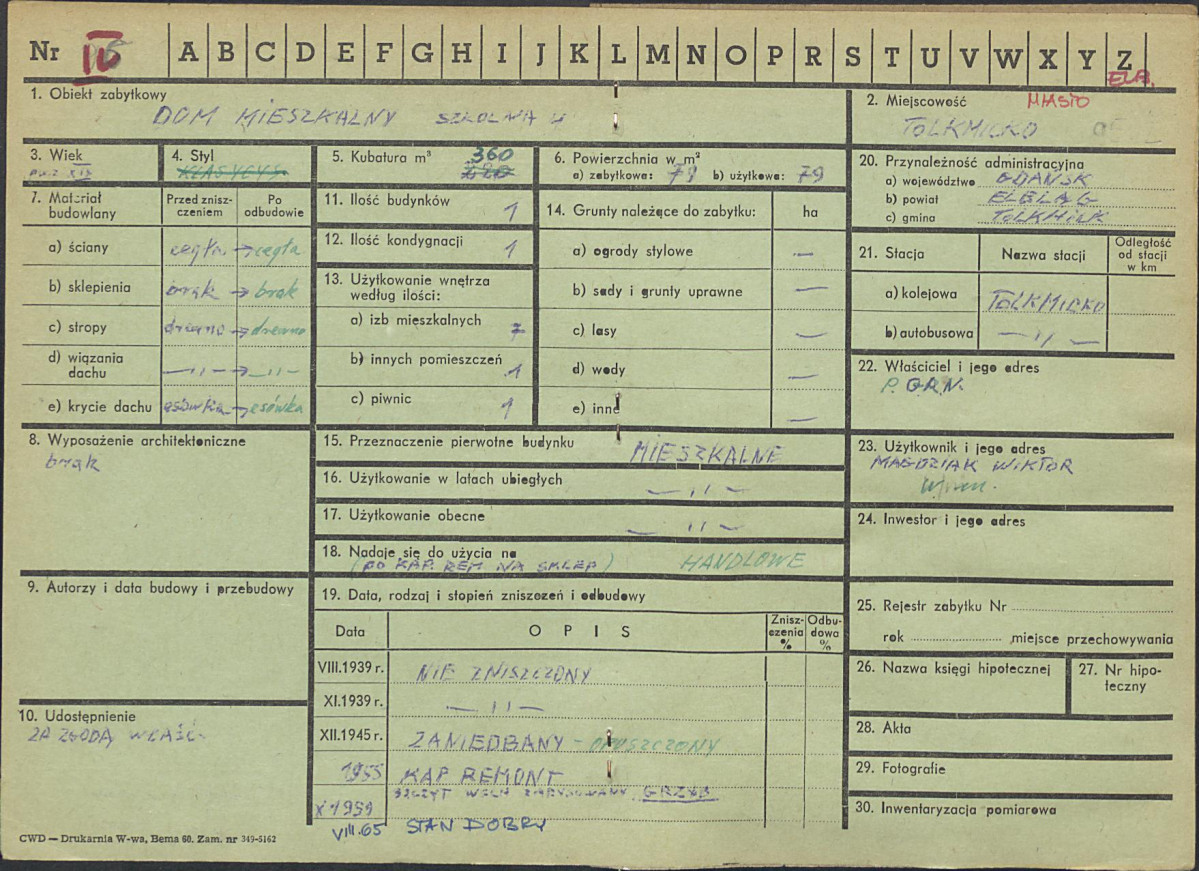 Nr IV A B C D E F G H I J K L M N O P R S T U V W X Y Z
ELB.
1. Obiekt zabytkowy
DOM MIESZKALNY SZKOLNA
2. Miejscowość MIASTO
TOLKMICKO
3. Wiek
4. Styl
KLASYCYS.
5. Kubatura m³ 360
6. Powierzchnia w m²
a) zabytkowa: 79 b) użytkowa: 79
20. Przynależność administracyjna
a) województwo GDAŃSK
b) powiat ELBLĄG
c) gmina TOLKMICK
7. Materiał budowlany
Przed zniszczeniem
Po odbudowie
a) ściany cegła → cegła
b) sklepienia brak → brak
c) stropy drewno → drewno
d) wiązania dachu —〃— → —〃—
e) krycie dachu esówka → esówka
11. Ilość budynków 1
12. Ilość kondygnacji 1
13. Użytkowanie wnętrza według ilości:
a) izb mieszkalnych 7
b) innych pomieszczeń 1
c) piwnic 1
14. Grunty należące do zabytku: ha
a) ogrody stylowe —
b) sady i grunty uprawne —
c) lasy —
d) wody —
e) inne —
21. Stacja
Nazwa stacji
Odległość od stacji w km
a) kolejowa TOLKMICKO
b) autobusowa —〃—
22. Właściciel i jego adres
P.G.R.N.
8. Wyposażenie architektoniczne
brak
15. Przeznaczenie pierwotne budynku MIESZKALNE
16. Użytkowanie w latach ubiegłych —〃—
17. Użytkowanie obecne —〃—
18. Nadaje się do użycia na
(PO KAP. REM NA SKLEP) HANDLOWE
23. Użytkownik i jego adres
MAGDZIAK WIKTOR
24. Inwestor i jego adres
9. Autorzy i data budowy i przebudowy
19. Data, rodzaj i stopień zniszczeń i odbudowy
Data
OPIS
Zniszczenia %
Odbudowa %
VIII.1939 r. NIE ZNISZCZONY
XI.1939 r. —〃—
XII.1945 r. ZANIEDBANY – OPUSZCZONY
1955 KAP REMONT
SZCZYT WSCH ZARYSOWANY GRZYB
X 1959
VIII.65 STAN DOBRY
10. Udostępnienie
ZA ZGODĄ WŁAŚC.
25. Rejestr zabytku Nr
rok miejsce przechowywania
26. Nazwa księgi hipotecznej
27. Nr hipoteczny
28. Akta
29. Fotografie
30. Inwentaryzacja pomiarowa
CWD — Drukarnia W-wa, Bema 60. Zam. nr 349-5162